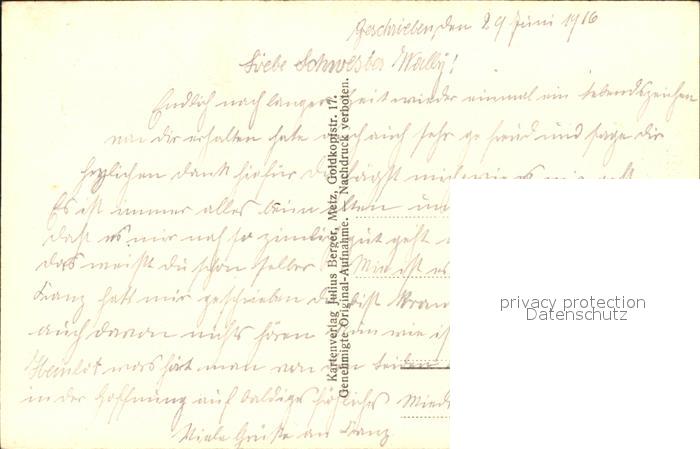 Geschrieben, den 29 Juni 1916
Liebe Schwester Wally!
Endlich nach langer Zeit wieder einmal ein Lebendszeichen
von dir erhalten hate mich auch sehr gefreud und sage dir
herzlichen dank hiefür du frägst mich wie es mir geht
Es ist immer alles beim alten und
dass es mir noch so zimlich gut geht
das weisst du schon selber Wie ist es
Franz hatt mir geschrieben du bist Kran
auch davon nichts hören wie ist
was hört man von den beiden
in der Hoffnung auf baldiges fröliches Wieds
Viele Grüße an Franz
Kartenverlag Julius Berger, Metz, Goldkopfstr. 17.
Genehmigte Original-Aufnahme. Nachdruck verboten.
privacy protection
Datenschutz